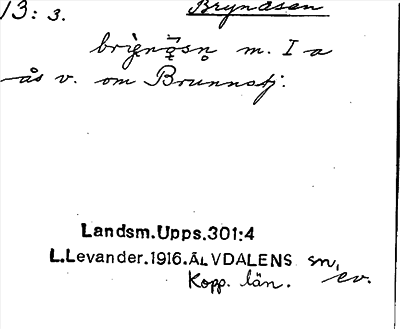 13:3. Brynåsen
m. I a
ås v. om Brunnstj:
Landsm.Upps.301:4
L.Levander.1916.ÄLVDALENS sn,
Kopp. län. ev.